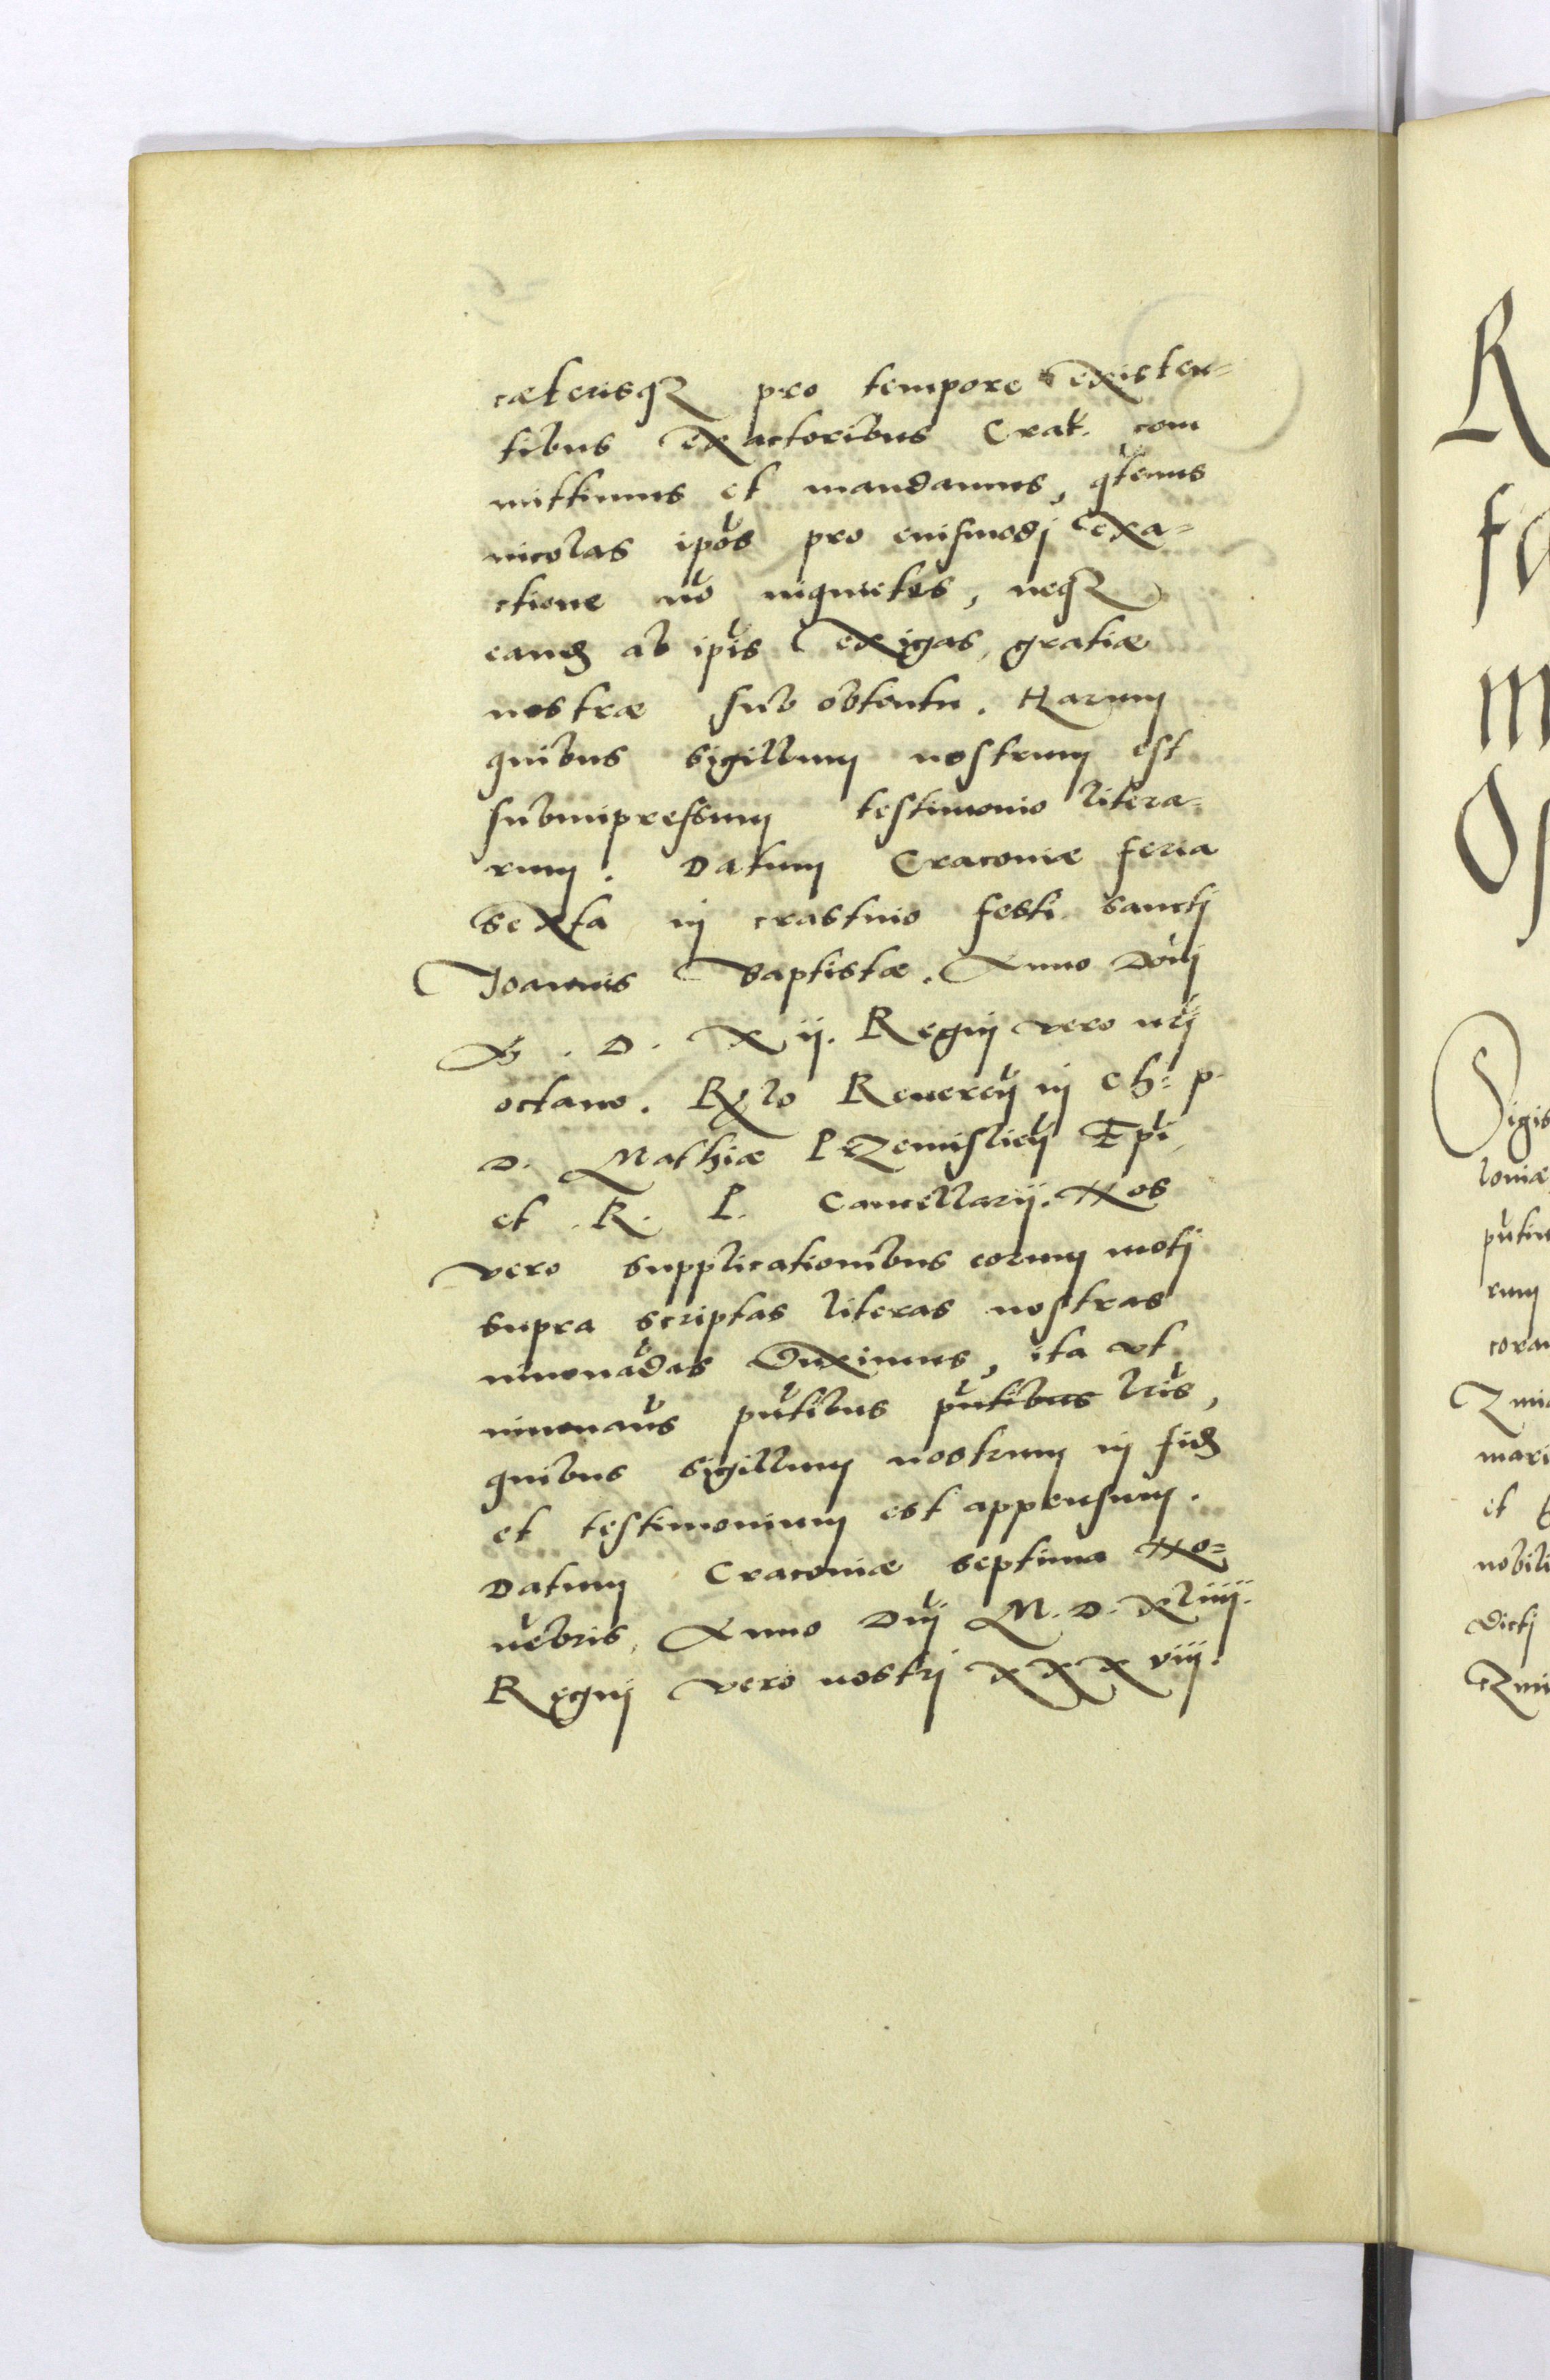 cæterisq3 pro tempore existen=
tibus exactoribus Crac. com
mittimus et mandamus, qtenus
incolas ipos pro eiusmodi exa=
ctione no inquietes, neq3
eand ab ipis exigas, gratiæ
nostræ sub obtentu. Harum
quibus sigillum nostrum est
subimpressum testimonio litera=
rum. Datum Cracoviæ feria
sexta in crastino festi sancti
Joannis Baptistæ. Anno Doni
M. D. Xij. Regni vero nri
octavo. Rlo Reveren in Ch= p.
D. Mathiæ Przemislien Epi,
et R. P. Cancellarij. Nos
vero supplicationibus eorum moti
supra scriptas literas nostras
innouadas duximus, ita vt
innouaus pntibus pntibus lris,
quibus sigillum nostrum in fid
et testimonium est appensum.
Datum Cracoviæ septima No=
uebris, Anno Dni M. D. xliiij.
Regni vero nostri XXXviij.
R
Sigis
loniæ
pntiu
rum
coram
Zmi
mari
et
nobili
dicti
Zmi